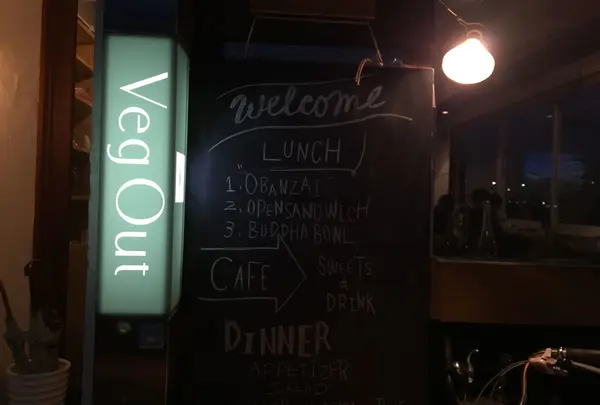 Veg Out
welcome
LUNCH
1. "OBANZAI"
2. OPENSANDWICH
3. BUDDHA BOWL
CAFE
SWEETS
&
DRINK
DINNER
APPETIZER
SALAD